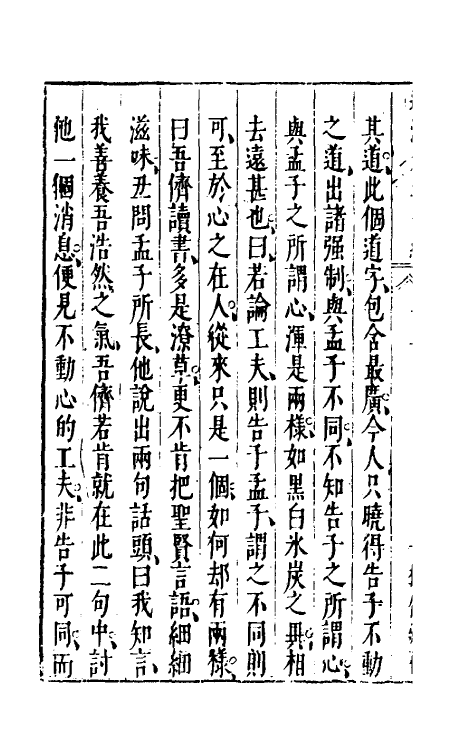 其道此個道字包含最廣今人只曉得告子不動
之道出諸强制與孟子不同不知告子之所謂心
與孟子之所謂心渾是兩樣如黑白氷炭之異相
去遠甚也曰若論工夫則告子孟子謂之不同則
可至於心之在人從來只是一個如何却有兩樣
曰吾儕讀書多是潦草更不肯把聖賢言語細細
滋味丑問孟子所長他說出兩句話頭曰我知言
我善養吾浩然之氣吾儕若肯就在此二句中討
他一個消息便見不動心的工夫非告子可同而